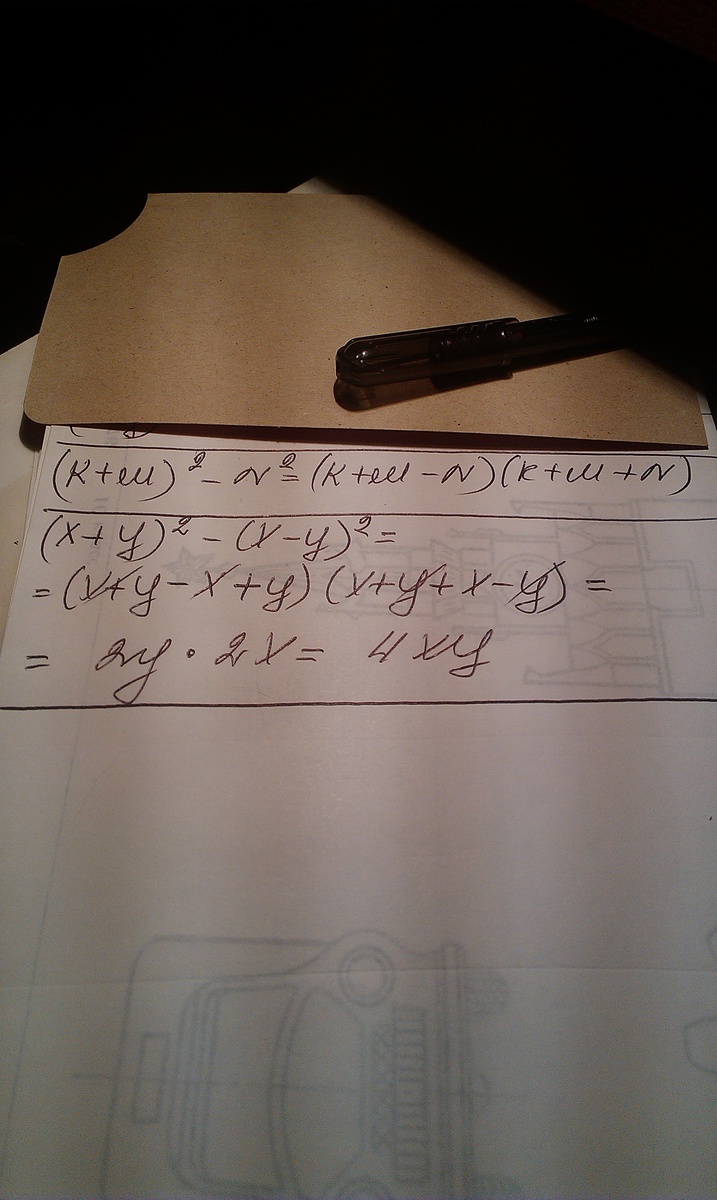 (k+m)² - n² = (k+m-n)(k+m+n)
(x+y)² - (x-y)² =
= (x+y-x+y)(x+y+x-y) =
= 2y · 2x = 4xy